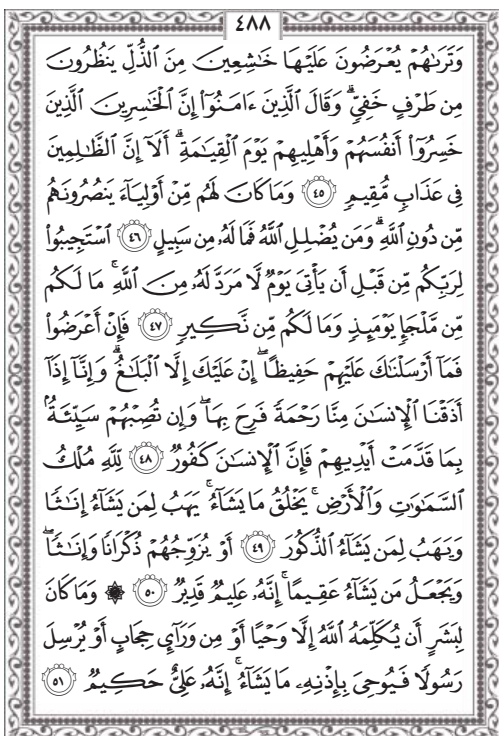 ٤٨٨
وَتَرَىٰهُمْ يُعْرَضُونَ عَلَيْهَا خَٰشِعِينَ مِنَ ٱلذُّلِّ يَنظُرُونَ
مِن طَرْفٍ خَفِىٍّ ۗ وَقَالَ ٱلَّذِينَ ءَامَنُوٓا۟ إِنَّ ٱلْخَٰسِرِينَ ٱلَّذِينَ
خَسِرُوٓا۟ أَنفُسَهُمْ وَأَهْلِيهِمْ يَوْمَ ٱلْقِيَٰمَةِ ۗ أَلَآ إِنَّ ٱلظَّٰلِمِينَ
فِى عَذَابٍ مُّقِيمٍ ٤٥ وَمَا كَانَ لَهُم مِّنْ أَوْلِيَآءَ يَنصُرُونَهُم
مِّن دُونِ ٱللَّهِ ۗ وَمَن يُضْلِلِ ٱللَّهُ فَمَا لَهُۥ مِن سَبِيلٍ ٤٦ ٱسْتَجِيبُوا۟
لِرَبِّكُم مِّن قَبْلِ أَن يَأْتِىَ يَوْمٌ لَّا مَرَدَّ لَهُۥ مِنَ ٱللَّهِ ۚ مَا لَكُم
مِّن مَّلْجَإٍ يَوْمَئِذٍ وَمَا لَكُم مِّن نَّكِيرٍ ٤٧ فَإِنْ أَعْرَضُوا۟
فَمَآ أَرْسَلْنَٰكَ عَلَيْهِمْ حَفِيظًا ۖ إِنْ عَلَيْكَ إِلَّا ٱلْبَلَٰغُ ۗ وَإِنَّآ إِذَآ
أَذَقْنَا ٱلْإِنسَٰنَ مِنَّا رَحْمَةً فَرِحَ بِهَا ۖ وَإِن تُصِبْهُمْ سَيِّئَةٌۢ
بِمَا قَدَّمَتْ أَيْدِيهِمْ فَإِنَّ ٱلْإِنسَٰنَ كَفُورٌ ٤٨ لِّلَّهِ مُلْكُ
ٱلسَّمَٰوَٰتِ وَٱلْأَرْضِ ۚ يَخْلُقُ مَا يَشَآءُ ۚ يَهَبُ لِمَن يَشَآءُ إِنَٰثًا
وَيَهَبُ لِمَن يَشَآءُ ٱلذُّكُورَ ٤٩ أَوْ يُزَوِّجُهُمْ ذُكْرَانًا وَإِنَٰثًا ۖ
وَيَجْعَلُ مَن يَشَآءُ عَقِيمًا ۚ إِنَّهُۥ عَلِيمٌ قَدِيرٌ ٥٠ ۞ وَمَا كَانَ
لِبَشَرٍ أَن يُكَلِّمَهُ ٱللَّهُ إِلَّا وَحْيًا أَوْ مِن وَرَآئِ حِجَابٍ أَوْ يُرْسِلَ
رَسُولًا فَيُوحِىَ بِإِذْنِهِۦ مَا يَشَآءُ ۚ إِنَّهُۥ عَلِىٌّ حَكِيمٌ ٥١